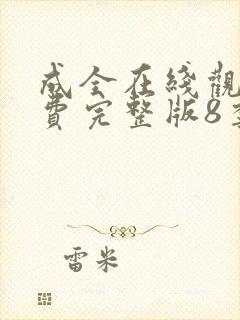 成全在线觀
費完整版8
雷米